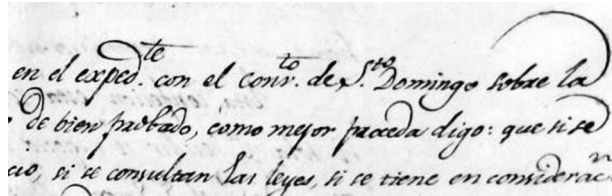 en el exped.te con el conv.to de S.to Domingo sobre la
de bien probado, como mejor proceda digo: que si se
cio, si se consultan las leyes, si se tiene en considerac.n